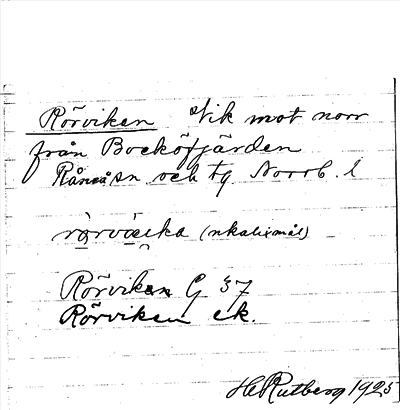 Rörviken Vik mot norr
från Bocköfjärden
Råneå sn och tg Norrb. l
(nkalixmål)
Rörviken G 37
Rörviken ek.
H Rutberg 1925